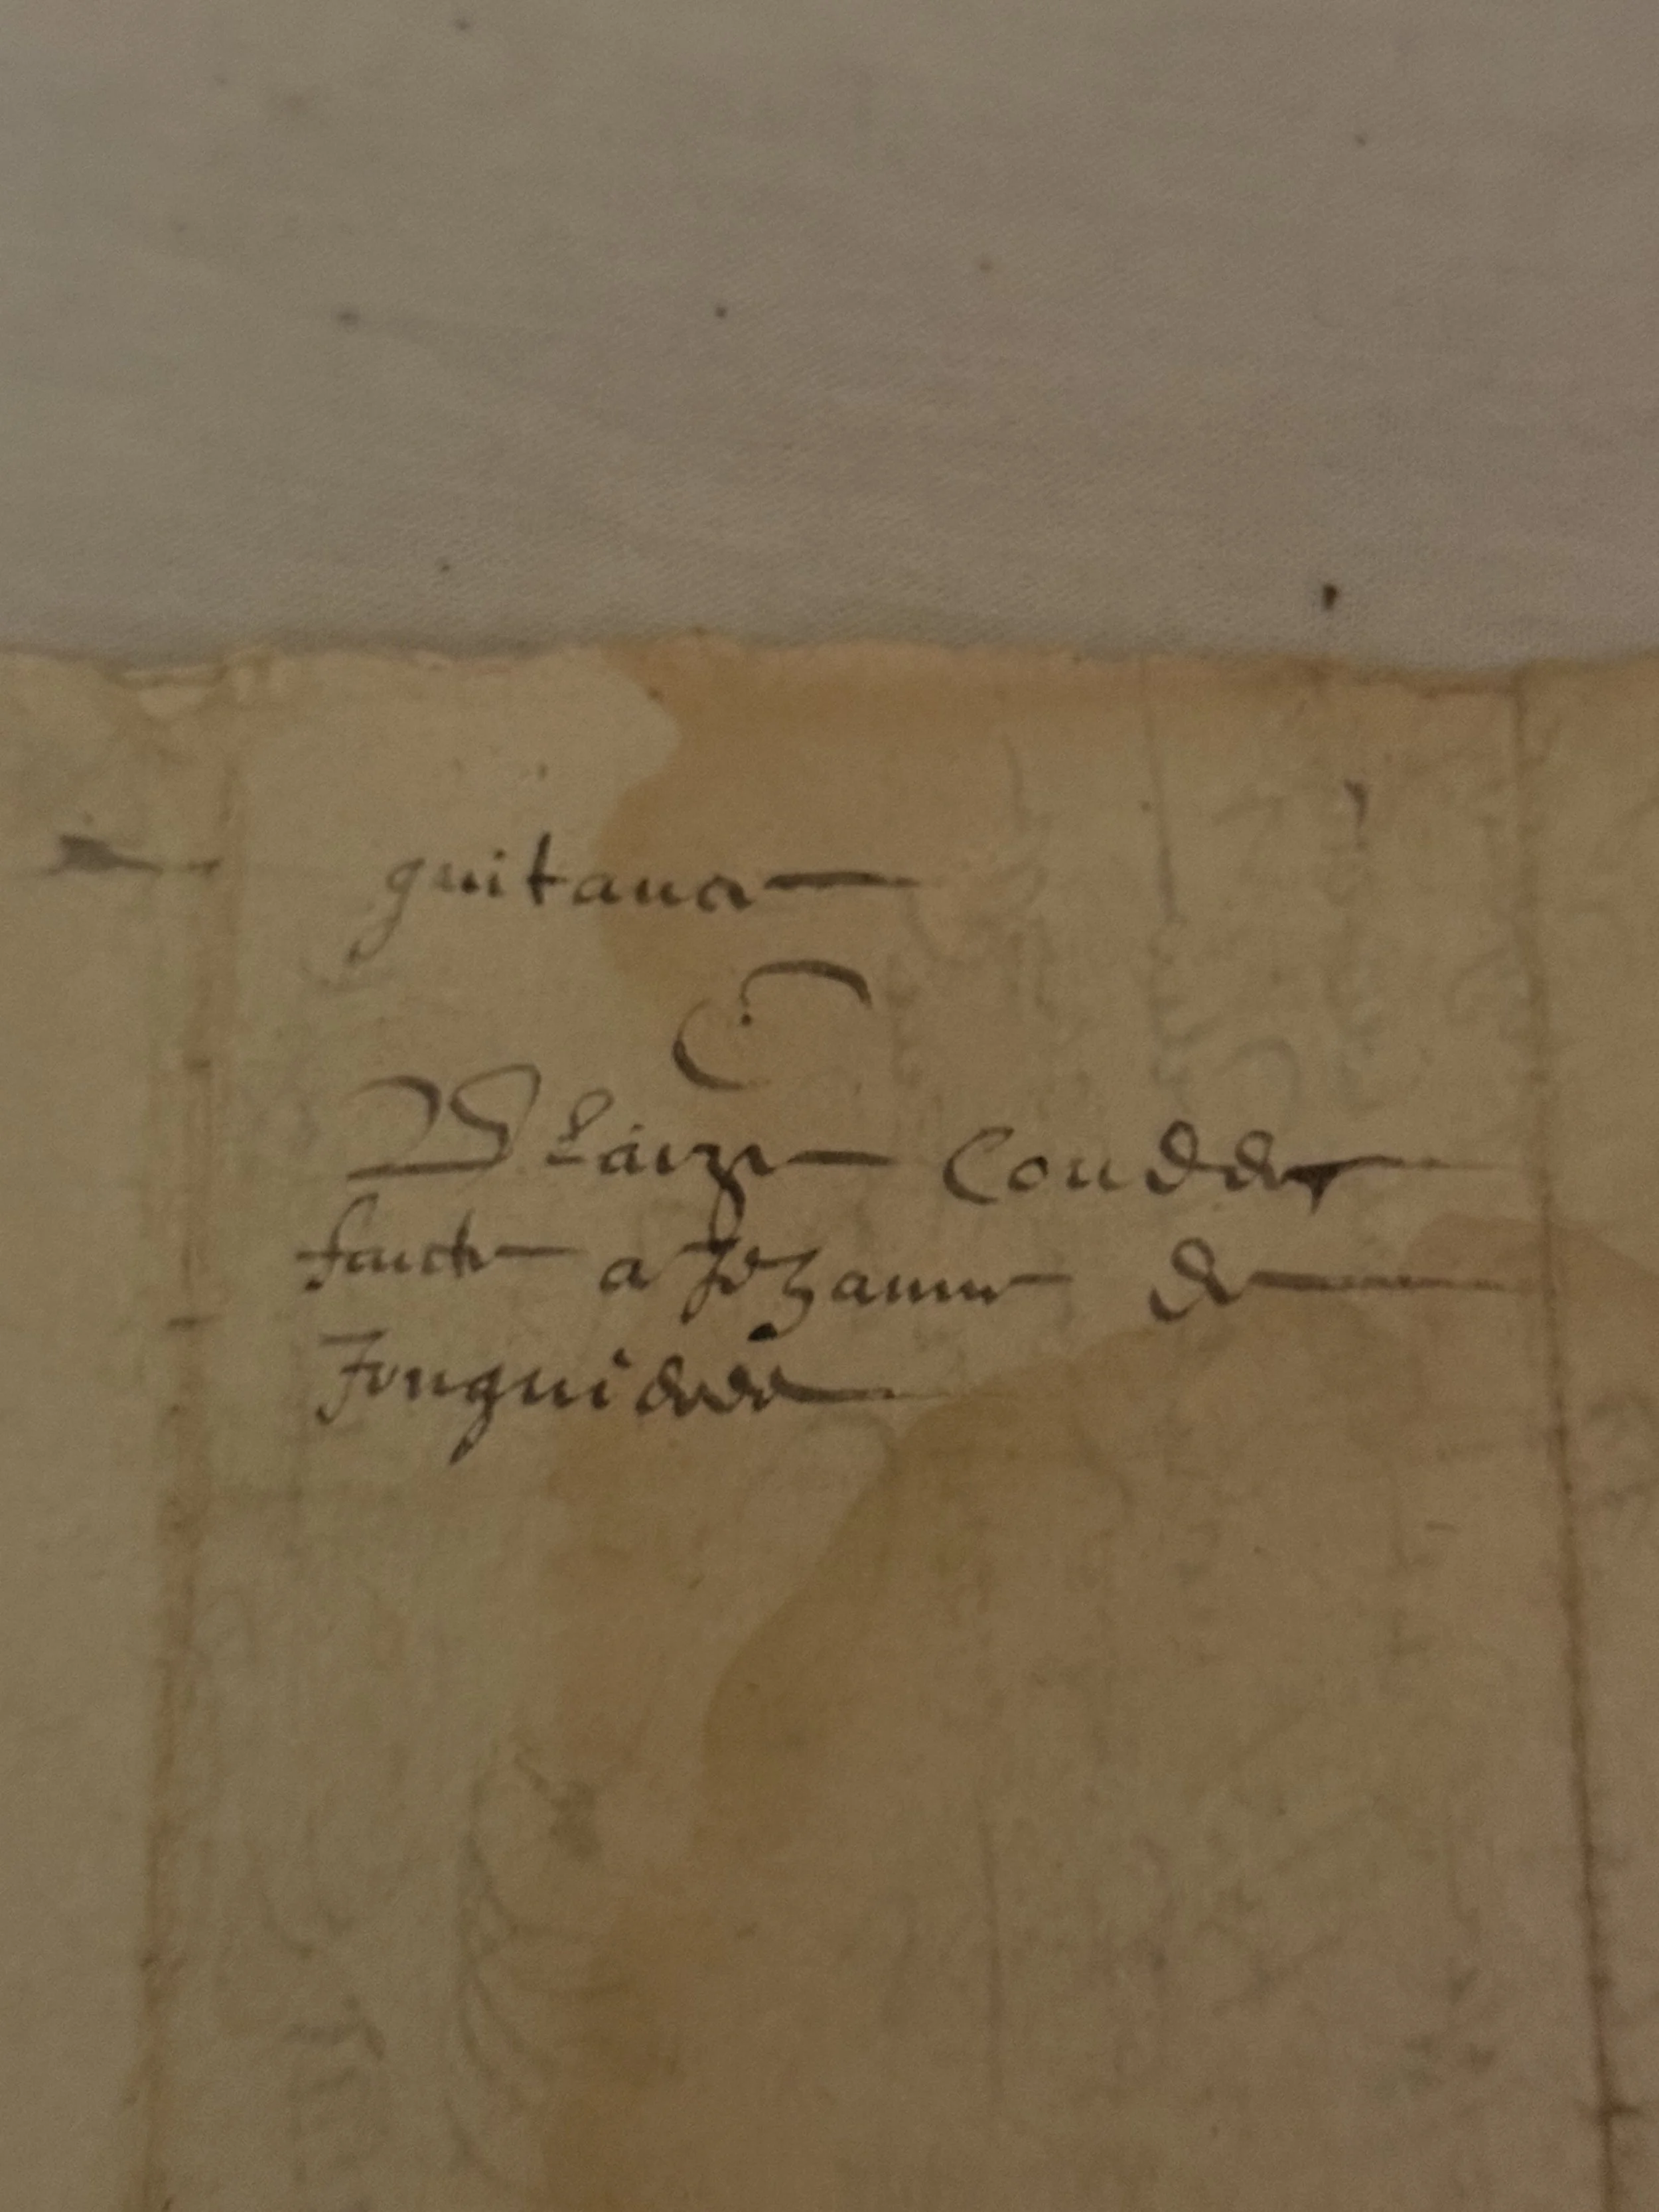 quitance
Blaize Couder
faicte a Jehanne de
Fonguidede